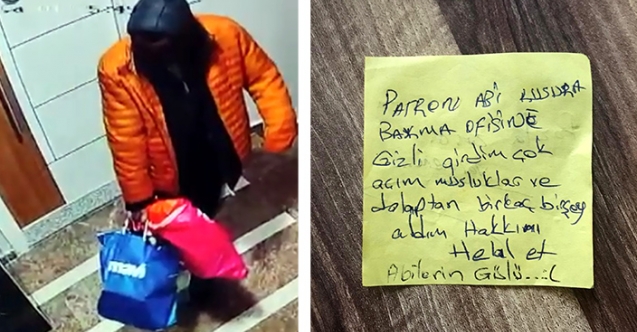 5:45
mavi
PATRON ABİ KUSURA
BAKMA OFİSİNE
Gizli girdim çok
açım musluklar ve
dolaptan birkaç birşey
aldım Hakkını
Helal et
Abilerin Gülü...:(